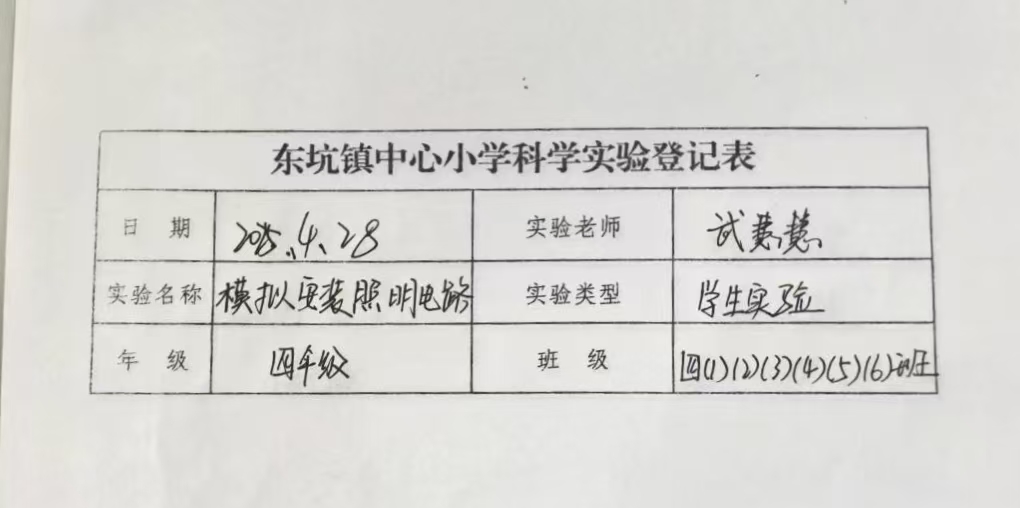 东坑镇中心小学科学实验登记表
日 期 2025.4.28 实验老师 试慧慧
实验名称 模拟安装照明电路 实验类型 学生实验
年 级 四年级 班 级 四(1)(2)(3)(4)(5)(6)班